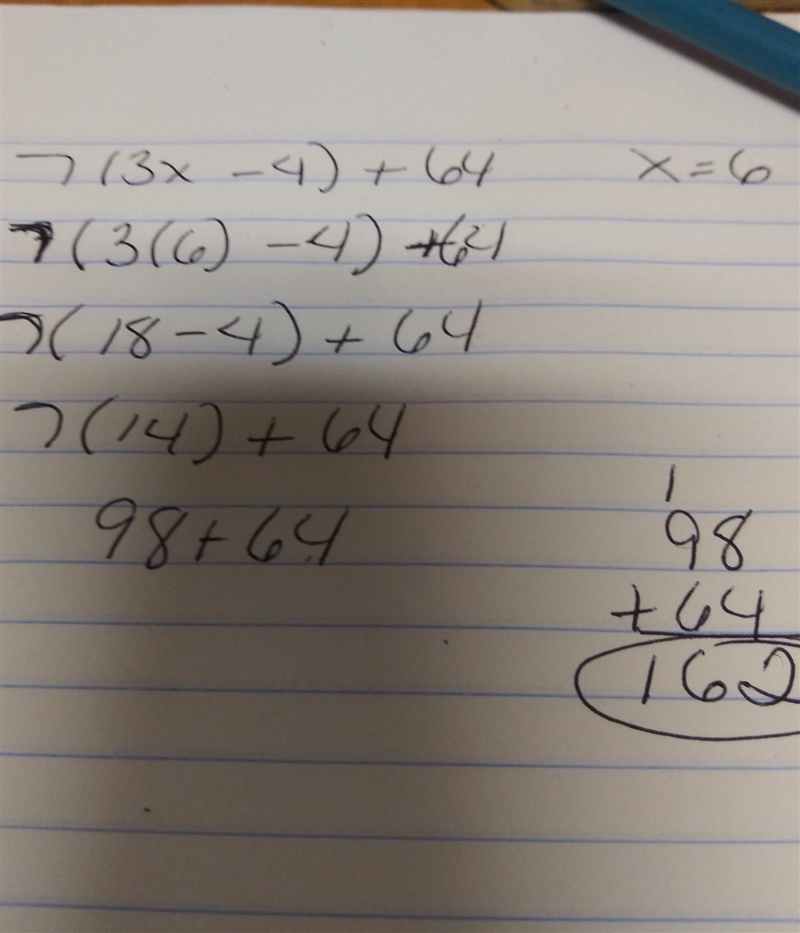 7(3x - 4) + 64 x = 6
7(3(6) - 4) + 64
7(18 - 4) + 64
7(14) + 64
98 + 64
1
98
+ 64
162